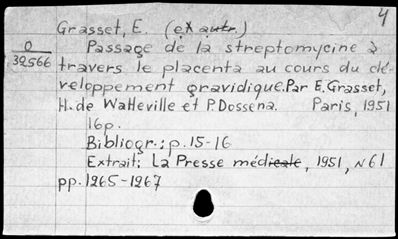 4
Grasset, E. (et autr.)
0
39566
Passage de la streptomycine à
travers le placenta au cours du dé-
veloppement gravidique. Par E. Grasset,
H. de Watteville et P. Dossena. Paris, 1951
16p.
Bibliogr.: p. 15-16
Extrait: La Presse médicale, 1951, N 61
pp. 1265-1267